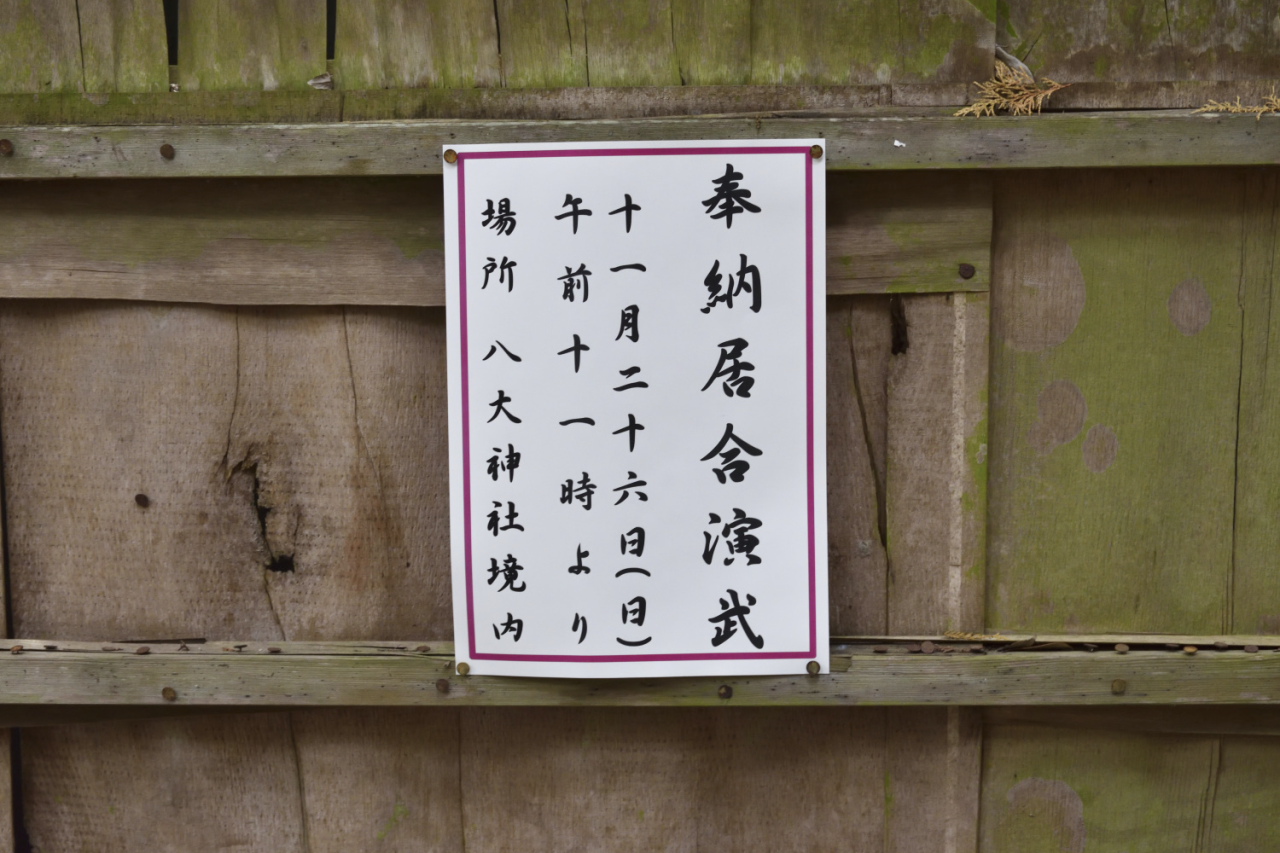 奉納居合演武
十一月二十六日(日)
午前十一時より
場所 八大神社境内